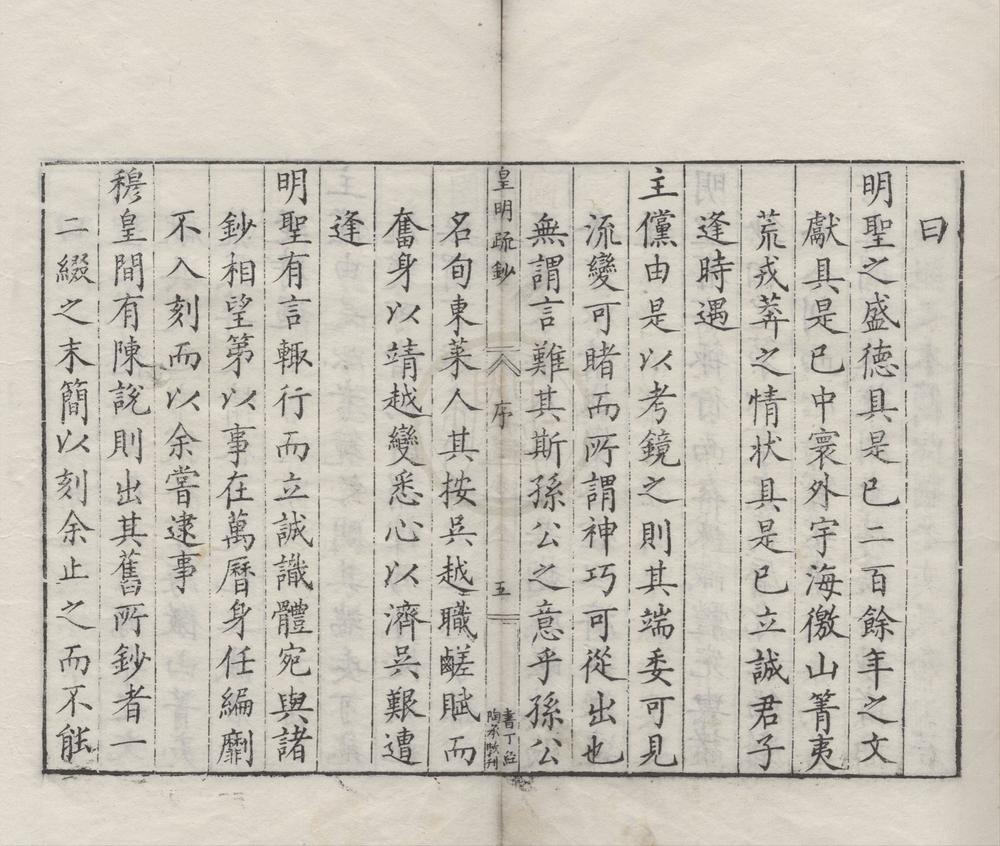 曰
明聖之盛德具是已二百餘年之文
獻具是已中寰外宇海徼山箐夷
荒戎莽之情狀具是已立誠君子
逢時遇
主儻由是以考鏡之則其端委可見
流變可睹而所謂神巧可從出也
無謂言難其斯孫公之意乎孫公
皇明疏鈔
序
五
陶承刊
名旬東萊人其按吳越職鹺賦而
奮身以靖越變悉心以濟吳艱遭
逢
明聖有言輙行而立誠識體宛與諸
鈔相望第以事在萬曆身任編劘
不入刻而以余嘗逮事
穆皇間有陳說則出其舊所鈔者一
二綴之末簡以刻余止之而不能